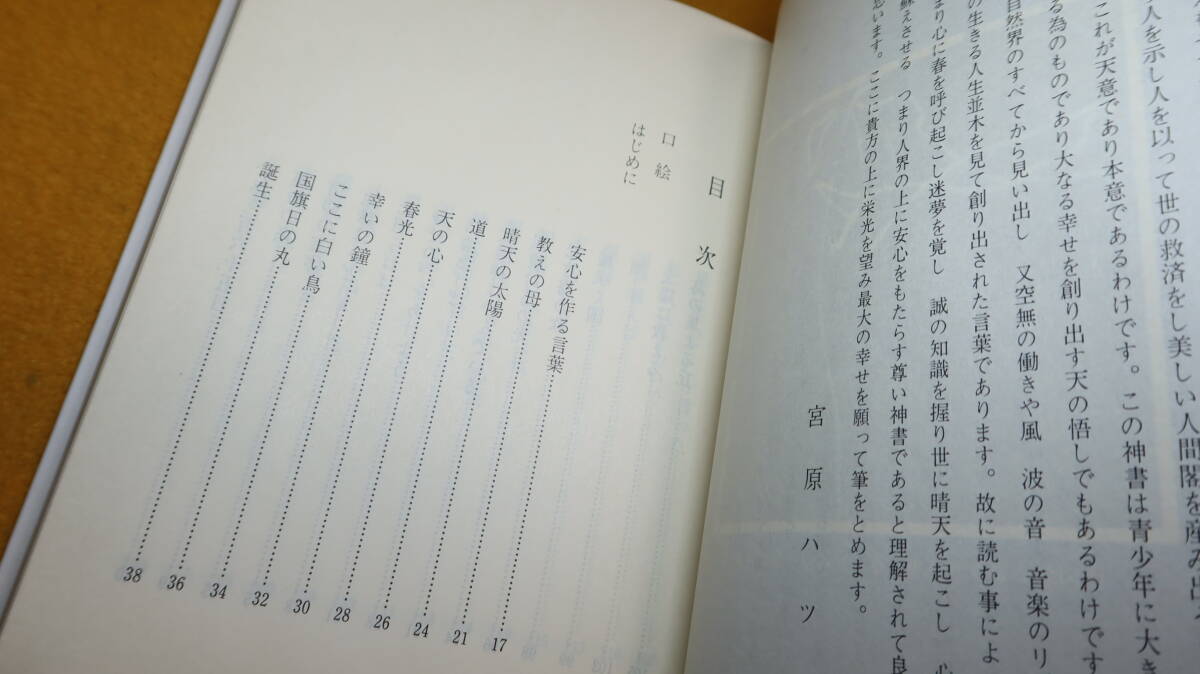 人を示し人を以って世の救済をし美しい人間閣を産み出
これが天意であり本意であるわけです。この神書は青少年に大き
る為のものであり大なる幸せを創り出す天の悟しでもあるわけです
自然界のすべてから見い出し　又空無の働きや風　波の音　音楽のリ
の生きる人生並木を見て創り出された言葉であります。故に読む事によ
まり心に春を呼び起こし迷夢を覚し　誠の知識を握り世に晴天を起こし　心
蘇えさせる　つまり人界の上に安心をもたらす尊い神書であると理解されて良
思います。ここに貴方の上に栄光を望み最大の幸せを願って筆をとめます。
宮原ハツ
目次
口絵
はじめに
安心を作る言葉……17
教えの母……21
晴天の太陽……24
道……26
天の心……28
春光……30
幸いの鐘……32
ここに白い鳥……34
国旗日の丸……36
誕生……38